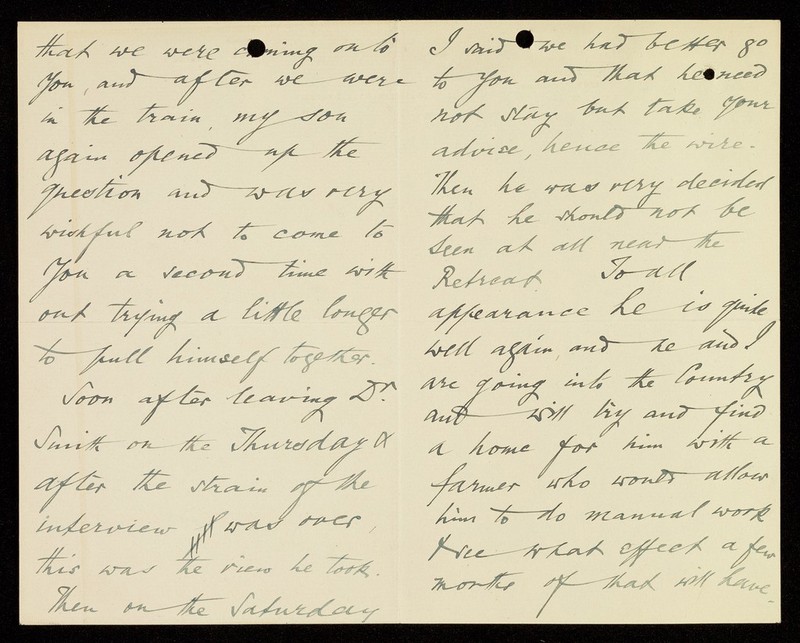 that we were coming on to
You, and after we were
in the train, my son
again opened up the
question and was very
wishful not to come to
You a second time with
out trying a little longer
to pull himself together.
Soon after leaving Dr.
Smith on the Thursday &
after the strain of the
interview was over,
this was the view he took.
Then on the Saturday
I said we had better go
to You and that he need
not stay but take your
advise, hence the wire.
Then he was very decided
that he should not be
seen at all near the
Retreat. To all
appearance he is quite
well again, and he and I
are going into the Country
and will try and find
a home for him with a
farmer who would allow
him to do manual work
& see what effect a few
months of that will have.